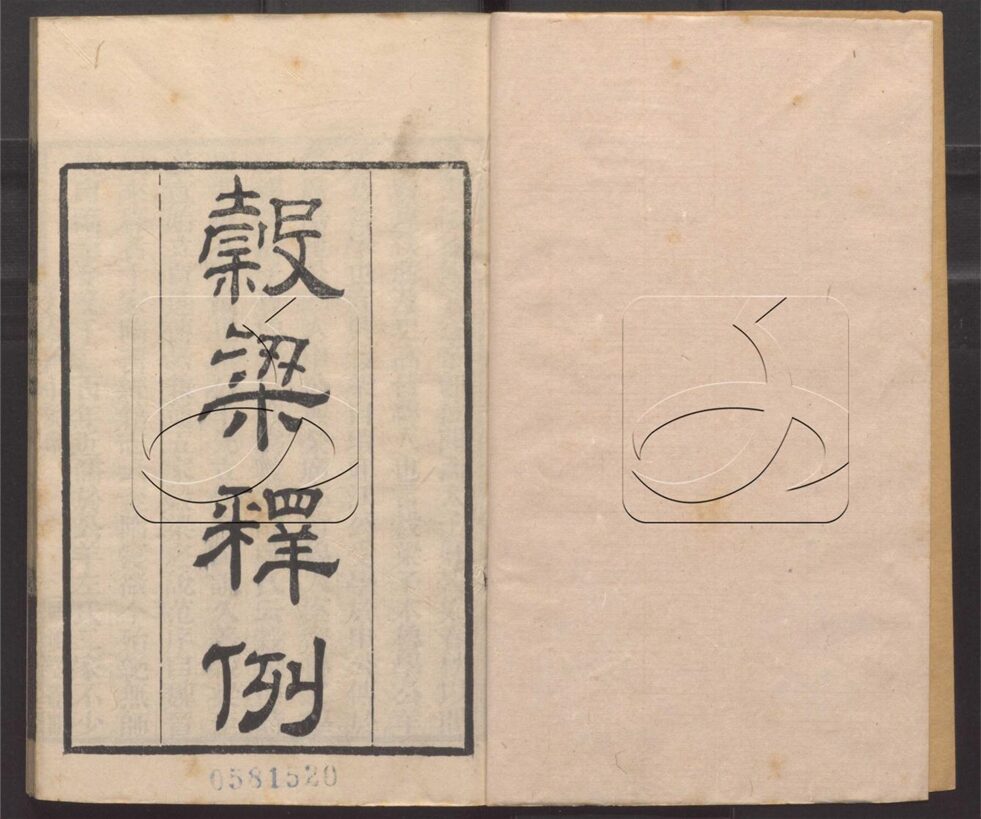 穀梁釋例
0581520